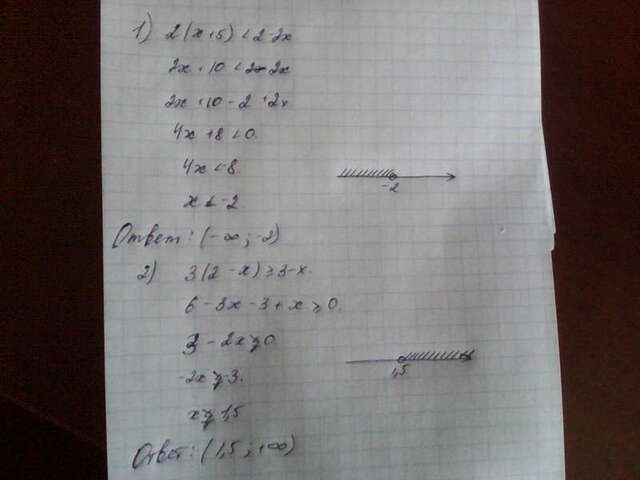 1) 2(x+5) < 2-2x
2x + 10 < 2-2x
2x + 10 - 2 + 2x
4x + 8 < 0
4x < 8.
x < -2
-2
Ответ: (-∞; -2)
2) 3(2-x) ≥ 3-x.
6-3x-3+x ≥ 0.
3-2x ≥ 0.
-2x ≥ -3.
x ≥ 1,5
1,5
Ответ: (1,5; +∞)